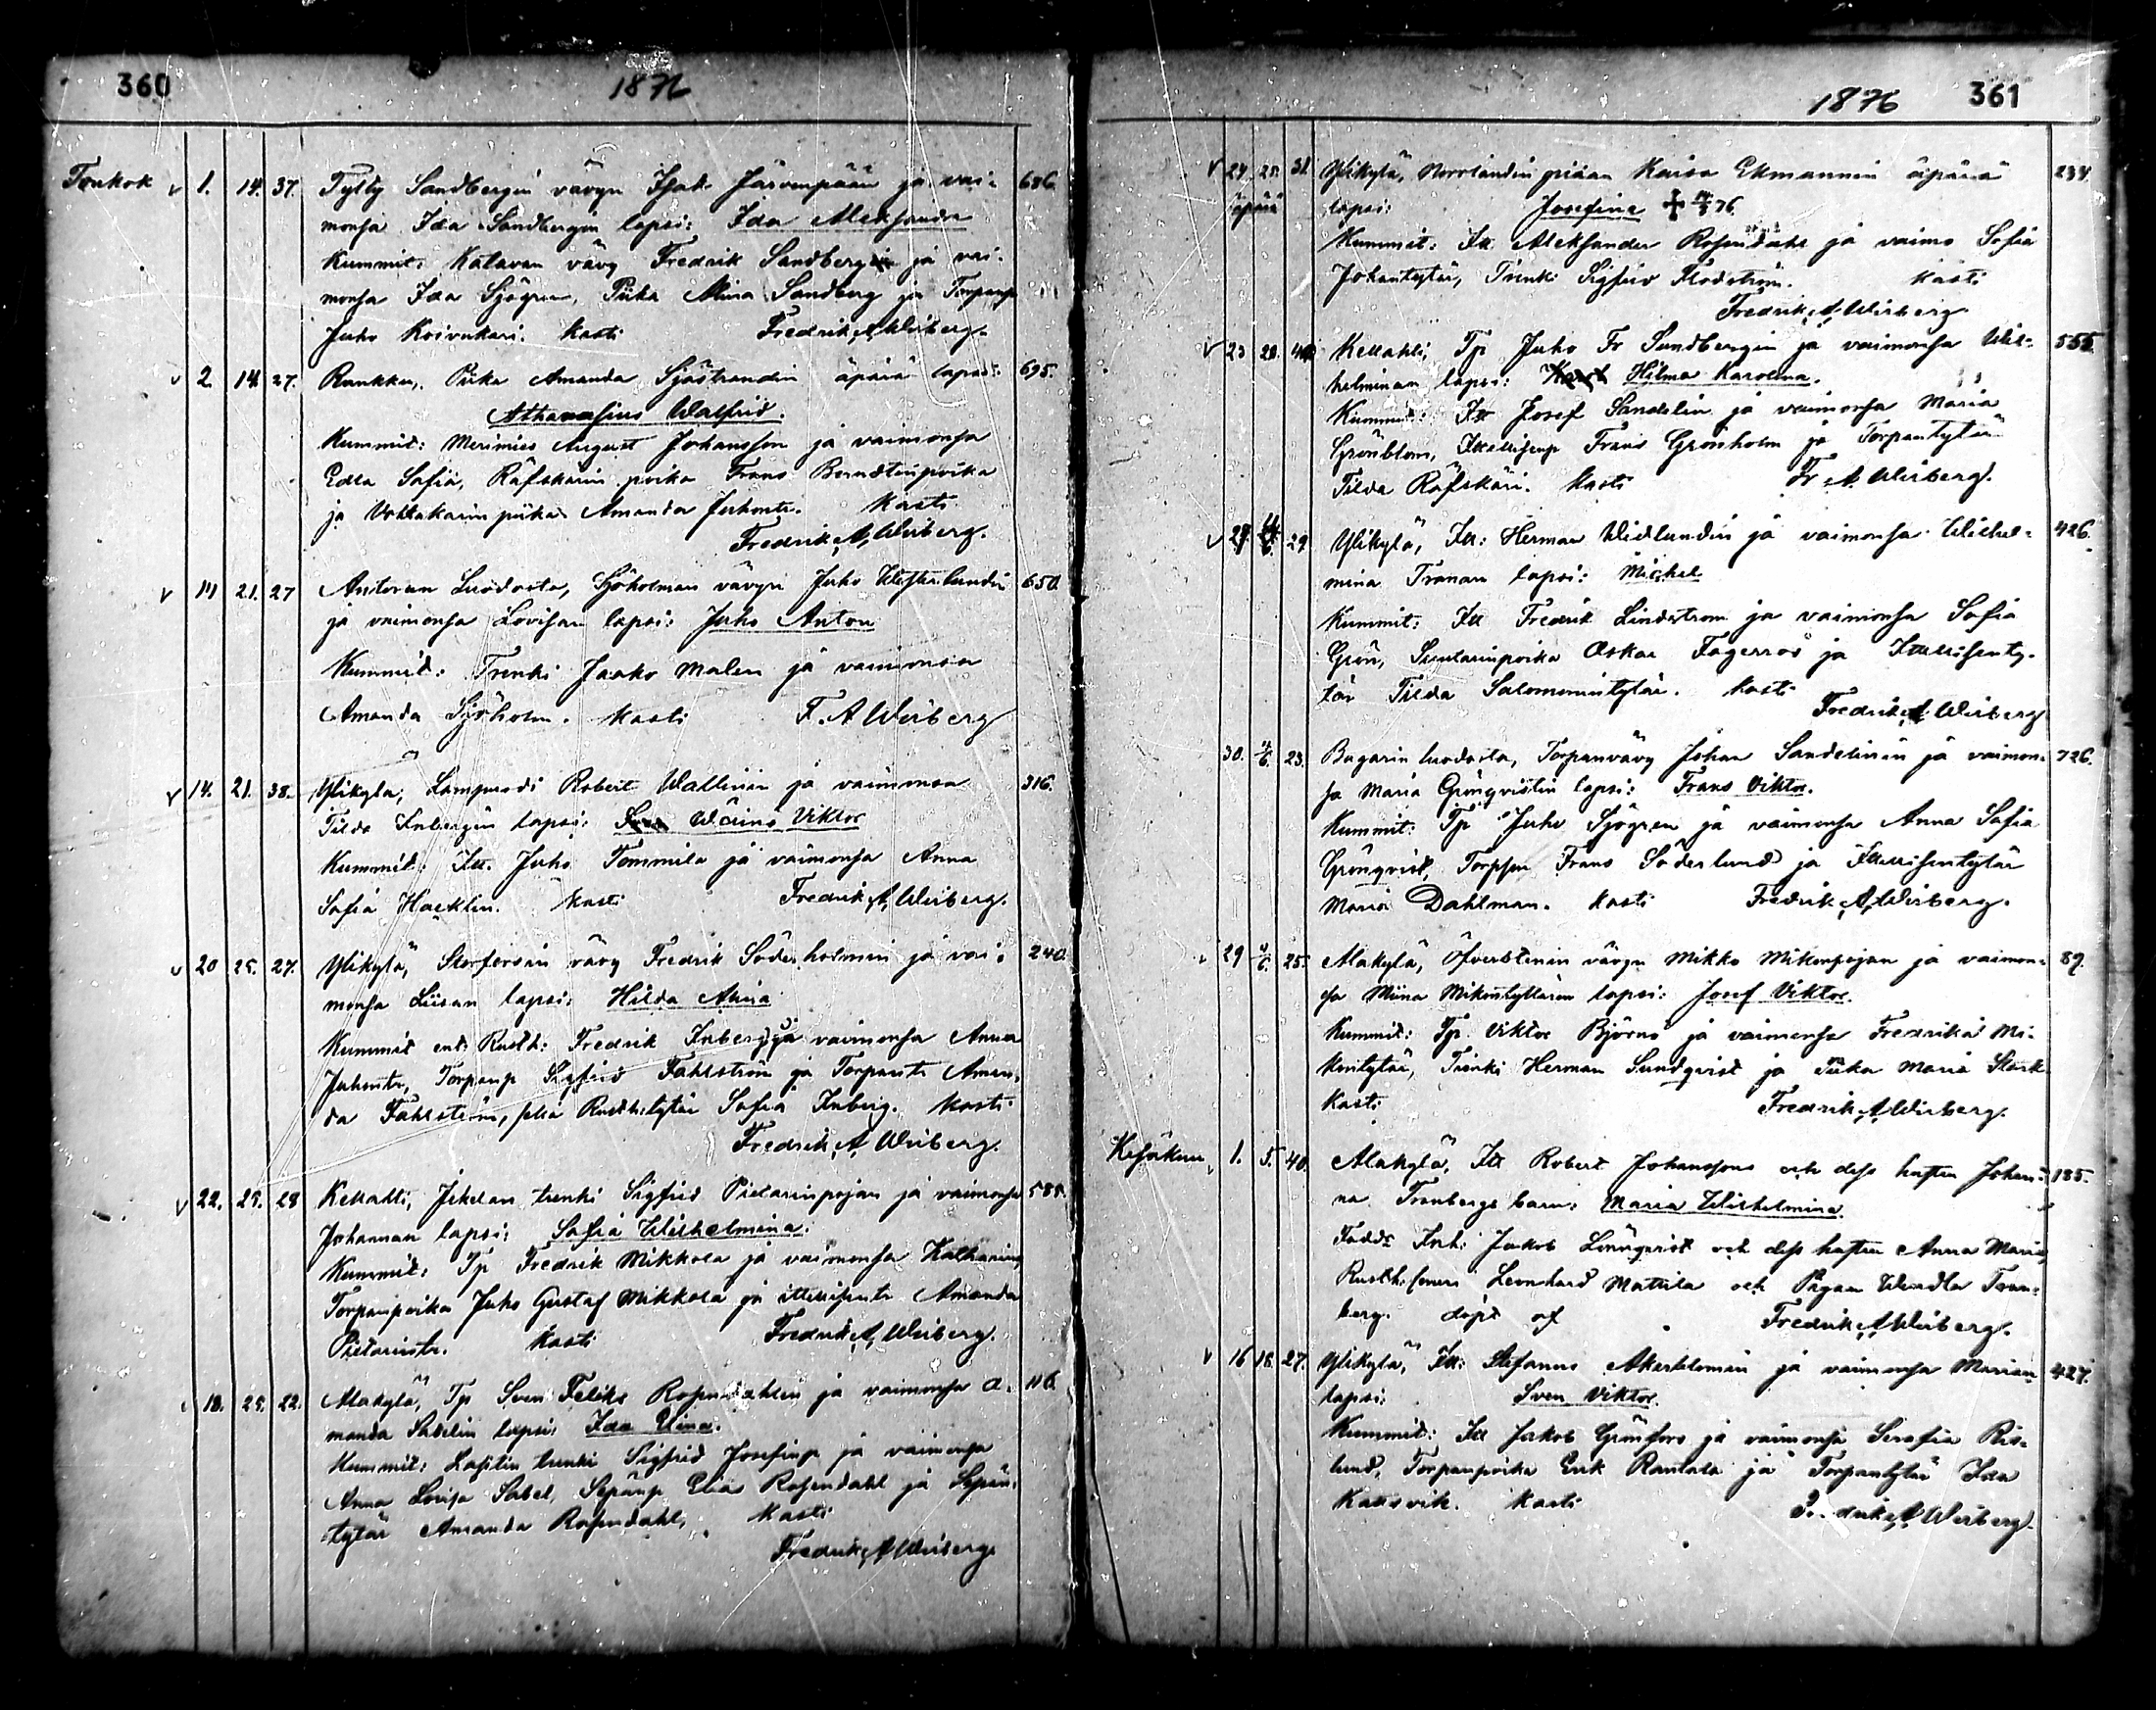 360 1876
Toukok v 1. 14. 37. Tylty Sandbergin vävyn Isak Järvenpään ja vai- 686.
monsa Ida Sandbergin lapsi: Ida Aleksandra
Kummit: Katavan vävy Fredrik Sandberg ja vai-
monsa Ida Sjögren, Piika Miina Sandberg ja Torpanp
Juho Koivukari. Kasti Fredrik A. Weiberg.
v 2. 14. 27. Rankku, Piika Amanda Sjöstrandin äpärä lapsi: 695.
Athanasius Walfrid.
Kummit: Merimies August Johansson ja vaimonsa
Edla Sofia, Räfskärin poika Frans Berndtinpoika
ja piika Amanda Juhont. Kasti
Fredrik A. Weiberg.
v 14 21. 27 Anteran Luodosta, Sjöholman vävyn Juho Westerlundin 650.
ja vaimonsa Lovisan lapsi: Juho Anton
Kummit: Trenki Jaako Malen ja vaimonsa
Amanda Sjöholm. Kasti F. A Weiberg
v 14. 21. 38. Ylikylä, Lampuodi Robert Wallinin ja vaimonsa 316.
Tilda Inbergin lapsi: Wäinö Viktor
Kummit: Itt. Juho Tommila ja vaimonsa Anna
Sofia Hacklin. Kasti Fredrik A. Weiberg.
v 20 25. 27. Ylikylä, Storforsin vävy Fredrik Söderholmin ja vai- 240.
monsa Liisan lapsi: Hilda Maria
Kummit ent. Rusth: Fredrik Inberg ja vaimonsa Anna
Juhont., Torpanp Sigfrid Fahlström ja Torpant. Aman-
da Fahlström, sekä Rusth:tytär Sofia Inberg. Kasti
Fredrik A. Weiberg.
v 22. 25. 28 Kellahti, trenki Sigfrid Pietarinpojan ja vaimonsa 585.
Johannan lapsi: Sofia Wilhelmina.
Kummit: Tp Fredrik Mikkola ja vaimonsa Katharina
Torpanpoika Juho Gustaf Mikkola ja ittellisent. Amanda
Pietarint. Kasti Fredrik A. Weiberg.
18. 25. 22. Alakylä, Tp Sven Feliks Rosendahlin ja vaimonsa A- 116.
manda Sabelin lapsi: Ida Elina.
Kummit: trenki Sigfrid Josefinp ja vaimonsa
Anna Lovisa Sabel, Sepänp Elias Rosendahl ja Sepän-
tytär Amanda Rosendahl, Kasti
Fredrik A Weiberg
1876 361
v 24. 25. 31. Ylikylä, Norrlandin piian Kaisa Ekmannin äpärä 234.
äpärä lapsi: Josefina + 76.
Kummit: Itt Aleksander Rosendahl ja vaimo Sofia
Juhontytär, Trenki Sigfrid Flodström. Kasti
Fredrik A. Weiberg
v 23 28. Kellahti, Tp Juho Fr Sundbergin ja vaimonsa Wil- 555.
helminan lapsi: Hilma Karolina.
Kummit: Itt Josef Sandelin ja vaimonsa Maria
Grönblom, Ittellisenp Frans Grönholm ja Torpantytär
Tilda Räfskäri. Kasti Fr A. Weiberg.
v 24. 29 Ylikylä, Itt: Herman Widlundin ja vaimonsa Wilhel- 426.
mina Tranan lapsi: Michel
Kummit: Itt Fredrik Lindström ja vaimonsa Sofia
Grön, Suutarinpoika Oskar Fagerros ja Ittellisenty-
tär Tilda Salomonintytär. Kasti
Fredrik A Weiberg
30. 4/6. 23. Bagarin luodosta, Torpanvävy Johan Sandelinin ja vaimon- 726.
sa Maria Grönqvistin lapsi: Frans Viktor.
Kummit: Tp Juho Sjögren ja vaimonsa Anna Sofia
Grönqvist, Torpson Frans Söderlund ja Ittellisentytär
Maria Dahlman. Kasti Fredrik A. Weiberg.
29 4/6. 25. Alakylä, Öfverstenin vävyn Mikko Mikonpojan ja vaimon- 89.
sa Miina Mikontyttären lapsi: Josef Viktor.
Kummit: Tp. Viktor Björni ja vaimonsa Fredrika Mi-
kontytär, Trenki Herman Sundqvist ja Piika Maria Stark
Kasti Fredrik A. Weiberg.
Kesäkuu 1. 5. 40. Alakylä, Itt Robert Johanssons och dess hustru Johan- 185.
na Tranbergs barn: Maria Wilhelmina.
Faddr Inh: Jakob Lönnqvist och dess hustru Anna Maria,
Rusth:sonen Leonhard Mattila och Pigan Wendla Tran-
berg. döpt af Fredrik A. Weiberg.
v 16 18. 27. Ylikylä, Itt: Stefanus Akerblomin ja vaimonsa Marian 427.
lapsi: Sven Viktor.
Kummit: Itt Jakob Grönfors ja vaimonsa Serafia Ros-
lund, Torpanpoika Erik Rantala ja Torpantytär Ida
Kaasvik. Kasti Fredrik A. Weiberg.